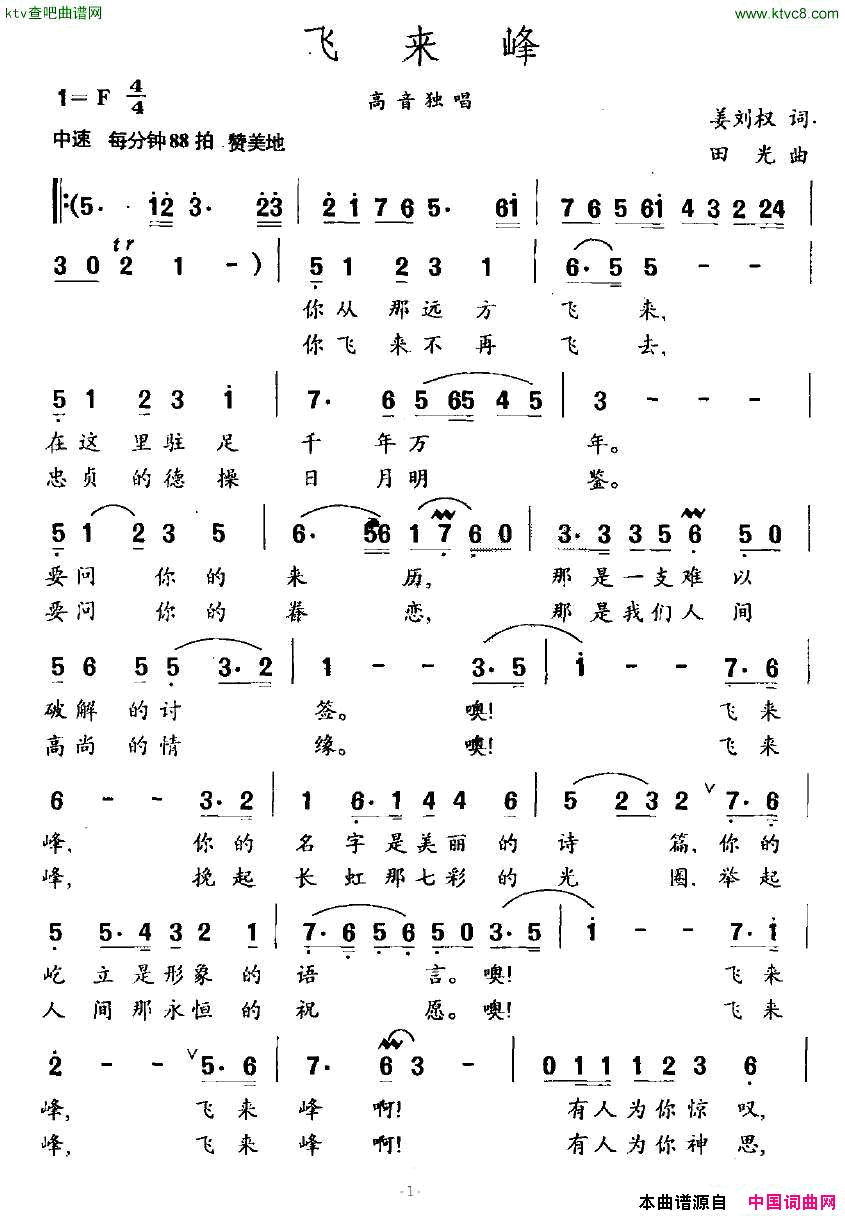 ktv查吧曲谱网
www.ktvc8.com
飞来峰
1=F 4/4
高音独唱
姜刘权 词.
中速 每分钟88拍 赞美地
田光曲
‖:(5. 12 3. 23 | 21 76 5. 61 | 76 561 43 224 |
30 tr 2 1 -) | 51 23 1 | 6.5 5 - - |
你从那远方飞来,
你飞来不再飞去,
51 23 1 | 7. 6 5 65 45 | 3 - - - |
在这里驻足千年万年。
忠贞的德操日月明鉴。
51 23 5 | 6. 56 17 60 | 3.3 35 6 50 |
要问你的来历,那是一支难以
要问你的眷恋,那是我们人间
56 55 3.2 | 1 - - 3.5 | 1 - - 7.6 |
破解的讨签。噢!飞来
高尚的情缘。噢!飞来
6 - - 3.2 | 1 6.1 44 6 | 5 23 2 ∨ 7.6 |
峰,你的名字是美丽的诗篇,你的
峰,挽起长虹那七彩的光圈.举起
5 5.4 32 1 | 7.6 56 50 3.5 | 1 - - 7.1 |
屹立是形象的语言。噢!飞来
人间那永恒的祝愿。噢!飞来
2 - - ∨ 5.6 | 7. 63 - | 011 1 123 6 |
峰,飞来峰啊!有人为你惊叹,
峰,飞来峰啊!有人为你神思,
-1-
本曲谱源自 中国词曲网